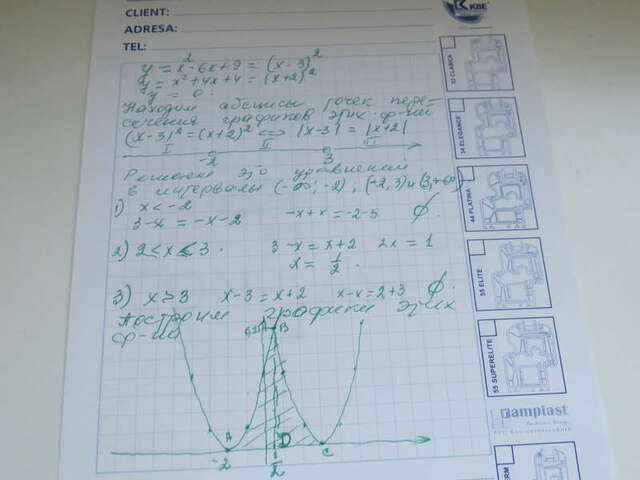 CLIENT:
KBE
ADRESA:
TEL:
y = x² - 6x + 9 = (x - 3)²
y = x² + 4x + 4 = (x + 2)²
y = 0
Находим абсцисы точек пере-
сечения графиков этих ф-ий
(x - 3)² = (x + 2)² <=> |x - 3| = |x + 2|
I II III
-2 3
Решаем это уравнений
в интервалы (-∞; -2), [-2, 3) и [3, +∞)
1) x < -2
3 - x = -x - 2 -x + x = -2 - 3 ∅.
2) 2 ≤ x ≤ 3. 3 - x = x + 2 2x = 1
x = 1/2.
3) x > 3 x - 3 = x + 2 x - x = 2 + 3 ∅.
Построим графики этих
ф-ий
B
A D C
-2 1/2
32 CLASICA
34 ELEGANCE
44 PLATINA
55 ELITE
55 SUPERELITE
Ramplast